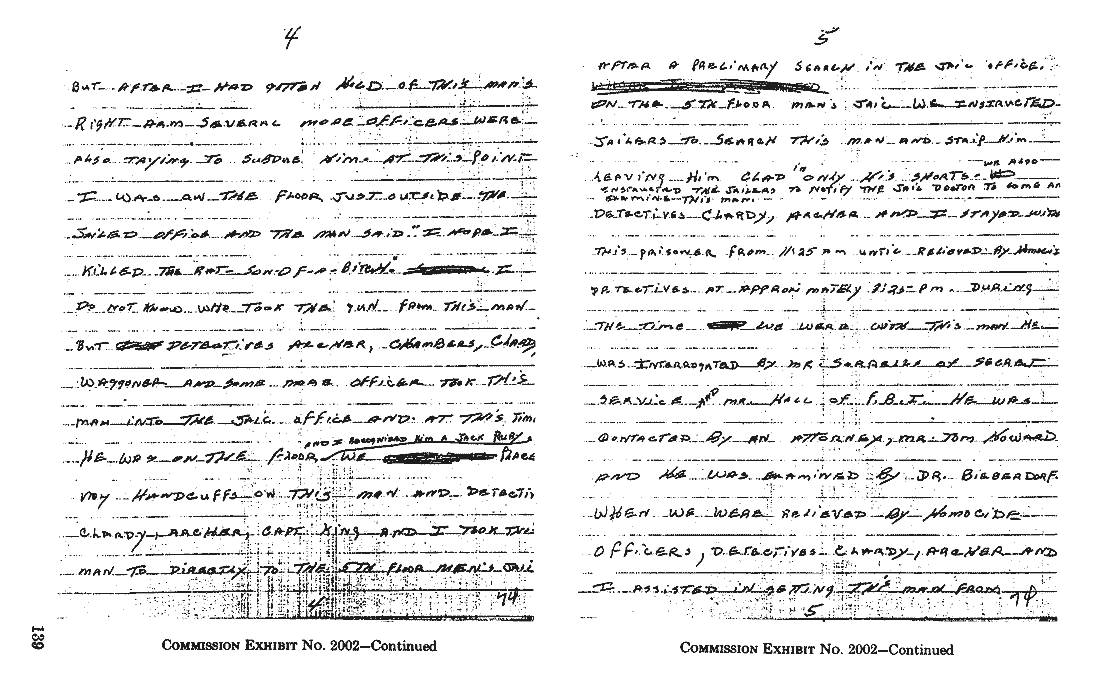 4
BUT AFTER I HAD GOTTEN HOLD OF THIS MAN'S
RIGHT ARM SEVERAL MORE OFFICERS WERE
ALSO TRYING TO SUBDUE HIM. AT THIS POINT
I WAS ON THE FLOOR JUST OUTSIDE THE
JAILED OFFICE AND THE MAN SAID "I HOPE I
KILLED THE RAT-SON-OF-A-BITCH." I
DO NOT KNOW WHO TOOK THE GUN FROM THIS MAN
BUT DETECTIVES ARCHER, CHAMBERS, CLARD,
WAGGONER AND SOME MORE OFFICER TOOK THIS
MAN INTO THE JAIL OFFICE AND AT THIS TIM
AND I RECOGNISED HIM A JACK RUBY.
HE WAS ON THE FLOOR, WE PLACE
MY HANDCUFFS ON THIS MAN AND DETECTIV
CLARDY, ARCHER, CAPT KING AND I TOOK THIS
MAN TO DIRECTLY TO THE 5TH FLOOR MEN'S JAIL
4
COMMISSION EXHIBIT No. 2002—Continued
139
5
AFTER A PRELIMARY SEARCH IN THE JAIL OFFICE.
ON THE 5TH FLOOR MAN'S JAIL WE INSTRUCTED
JAILERS TO SEARCH THIS MAN AND STRIP HIM
LEAVING HIM CLAD IN ONLY HIS SHORTS. WE ALSO
INSTRUCTED THE JAILERS TO NOTIFY THE JAIL DOCTOR TO COME AN
EXAMINE THIS MAN.
DETECTIVES CLARDY, ARCHER AND I STAYED WITH
THIS PRISONER FROM 11:25 AM UNTIL RELIEVED BY
DETECTIVES AT APPROXIMATELY 3:25 PM. DURING
THE TIME WE WERE WITH THIS MAN HE
WAS INTERROGATED BY MR SORRELLS OF SECRET
SERVICE AND MR. HALL OF F.B.I. HE WAS
CONTACTED BY AN ATTORNEY, MR. TOM HOWARD
AND HE WAS EXAMINED BY DR. BIEBERDORF.
WHEN WE WERE RELIEVED BY HOMOCIDE
OFFICERS, DETECTIVES CLARDY, ARCHER AND
I ASSISTED IN GETTING THIS MAN FROM
5
COMMISSION EXHIBIT No. 2002—Continued